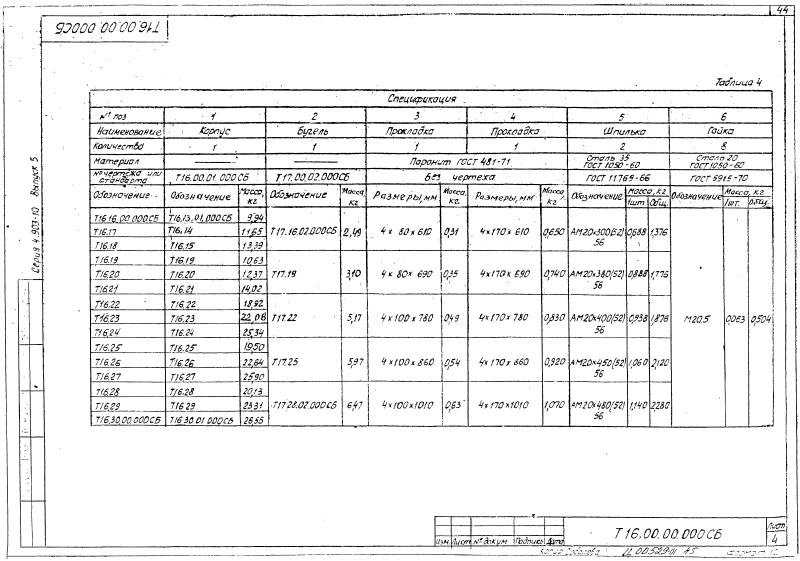 44
Т16.00.00.000СБ
Серия 4.903-10 Выпуск 5
Таблица 4
Спецификация
№ поз 1 2 3 4 5 6
Наименование Корпус Бугель Прокладка Прокладка Шпилька Гайка
Количество 1 1 1 1 2 8
Материал Паронит ГОСТ 481-71 Сталь 35 ГОСТ 1050-60 Сталь 20 ГОСТ 1050-60
№ чертежа или стандарта Т16.00.01.000СБ Т17.00.02.000СБ Без чертежа ГОСТ 11769-66 ГОСТ 5915-70
Обозначение Обозначение Масса, кг Обозначение Масса, кг Размеры, мм Масса, кг Размеры, мм Масса, кг Обозначение Масса, кг 1шт Общ. Обозначение Масса, кг 1шт. Общ.
Т16.16.00.000СБ Т16.13.01.000СБ 9,94
Т16.17 Т16.14 11,65 Т17.16.02.000СБ 2,49 4×80×610 0,31 4×170×610 0,650 АМ20×300(52) 56 0,688 1,376
Т16.18 Т16.15 13,39
Т16.19 Т16.19 10,63
Т16.20 Т16.20 12,37 Т17.19 3,10 4×80×690 0,35 4×170×690 0,740 АМ20×380(52) 56 0,888 1,776
Т16.21 Т16.21 14,02
Т16.22 Т16.22 18,92
Т16.23 Т16.23 22,08 Т17.22 5,17 4×100×780 0,49 4×170×780 0,830 АМ20×400(52) 56 0,938 1,876 М20.5 0,063 0,504
Т16.24 Т16.24 25,34
Т16.25 Т16.25 19,50
Т16.26 Т16.26 22,64 Т17.25 5,97 4×100×860 0,54 4×170×860 0,920 АМ20×450(52) 56 1,060 2,120
Т16.27 Т16.27 25,90
Т16.28 Т16.28 20,13
Т16.29 Т16.29 23,31 Т17.28.02.000СБ 6,47 4×100×1010 0,63 4×170×1010 1,070 АМ20×480(52) 56 1,140 2,280
Т16.30.00.000СБ Т16.30.01.000СБ 26,55
Т16.00.00.000СБ
Лист
4
Изм. Лист № докум Подпись Дата
Формат 12